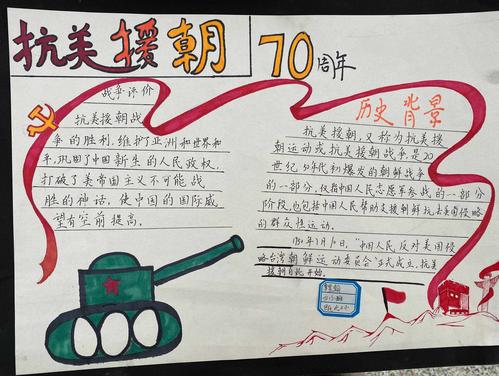 抗美援朝 70周年
战争评价
抗美援朝战
争的胜利,维护了亚洲和世界和
平,巩固了中国新生的人民政权,
打破了美帝国主义不可能战
胜的神话,使中国的国际威
望有空前提高.
历史背景
抗美援朝,又称为抗美援
朝运动或抗美援朝战争是20
世纪50年代初爆发的朝鲜战争
的一部分,仅指中国人民志愿军参战的一部分
阶段,也包括中国人民帮助支援朝鲜抗击美国侵略
的群众性运动.
1950年7月10日,“中国人民反对美国侵
略台湾朝鲜运动委员会”正式成立,抗美
援朝自此开始.